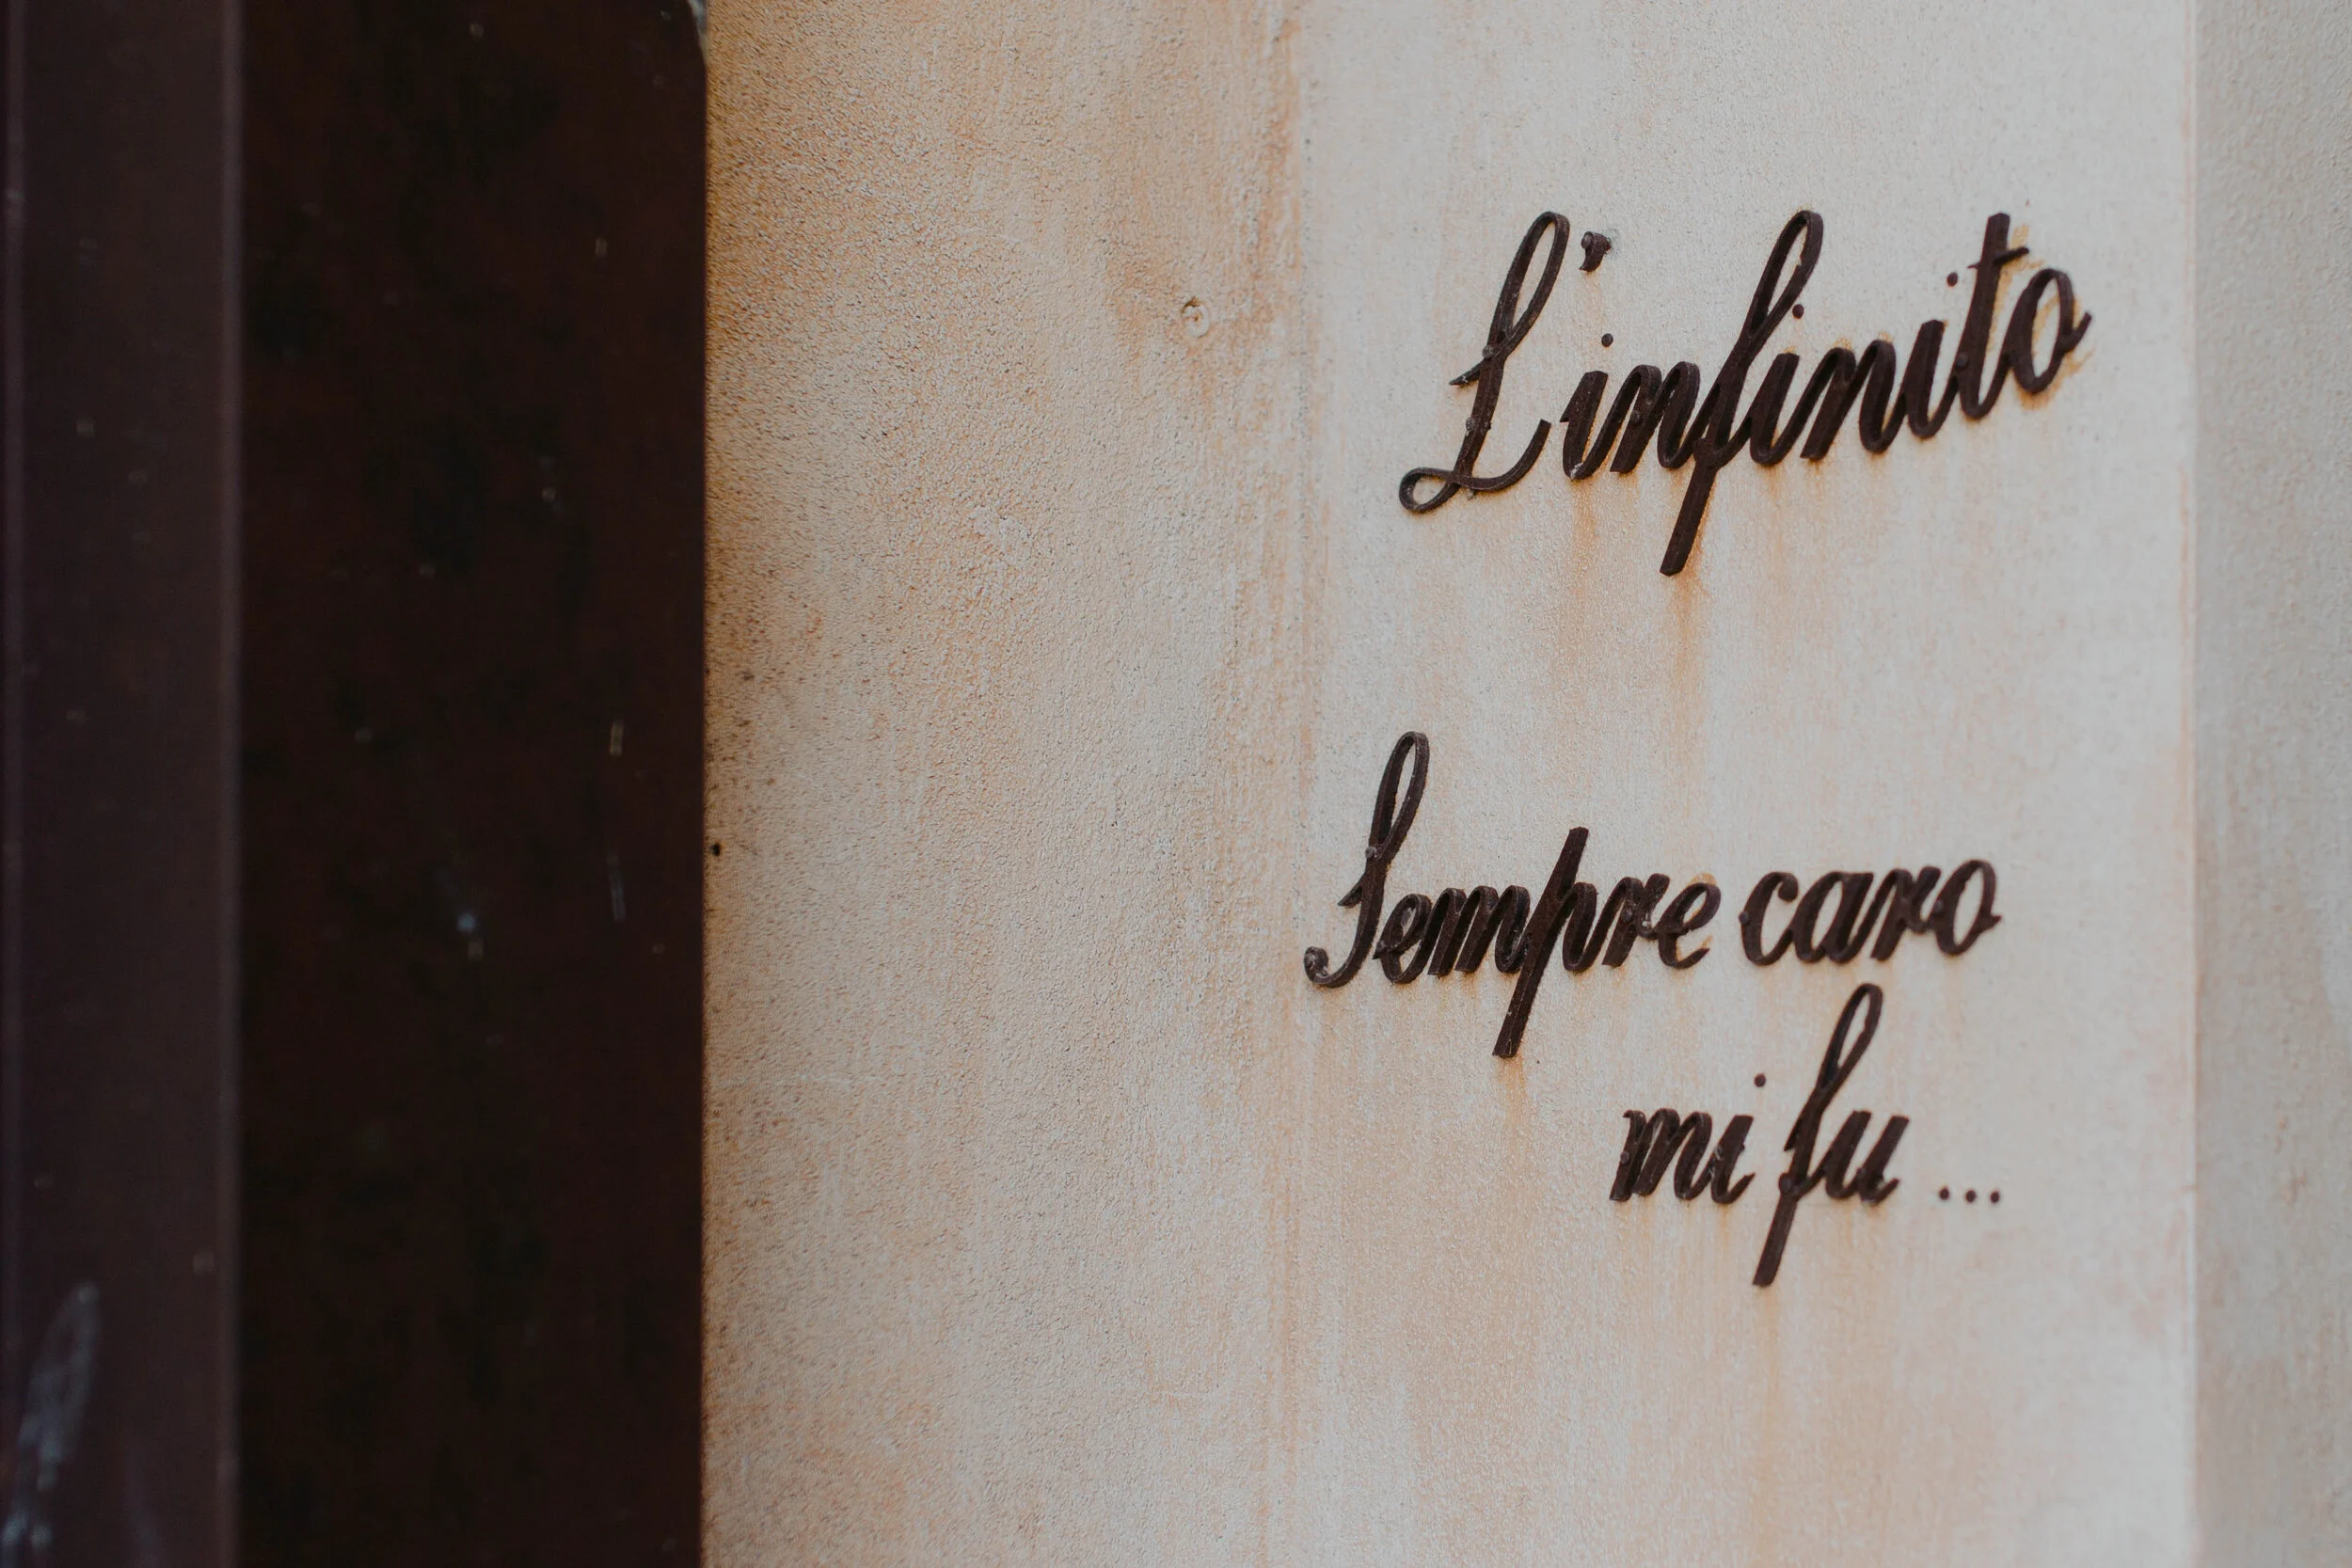 L'infinito
Sempre caro
mi fu ...